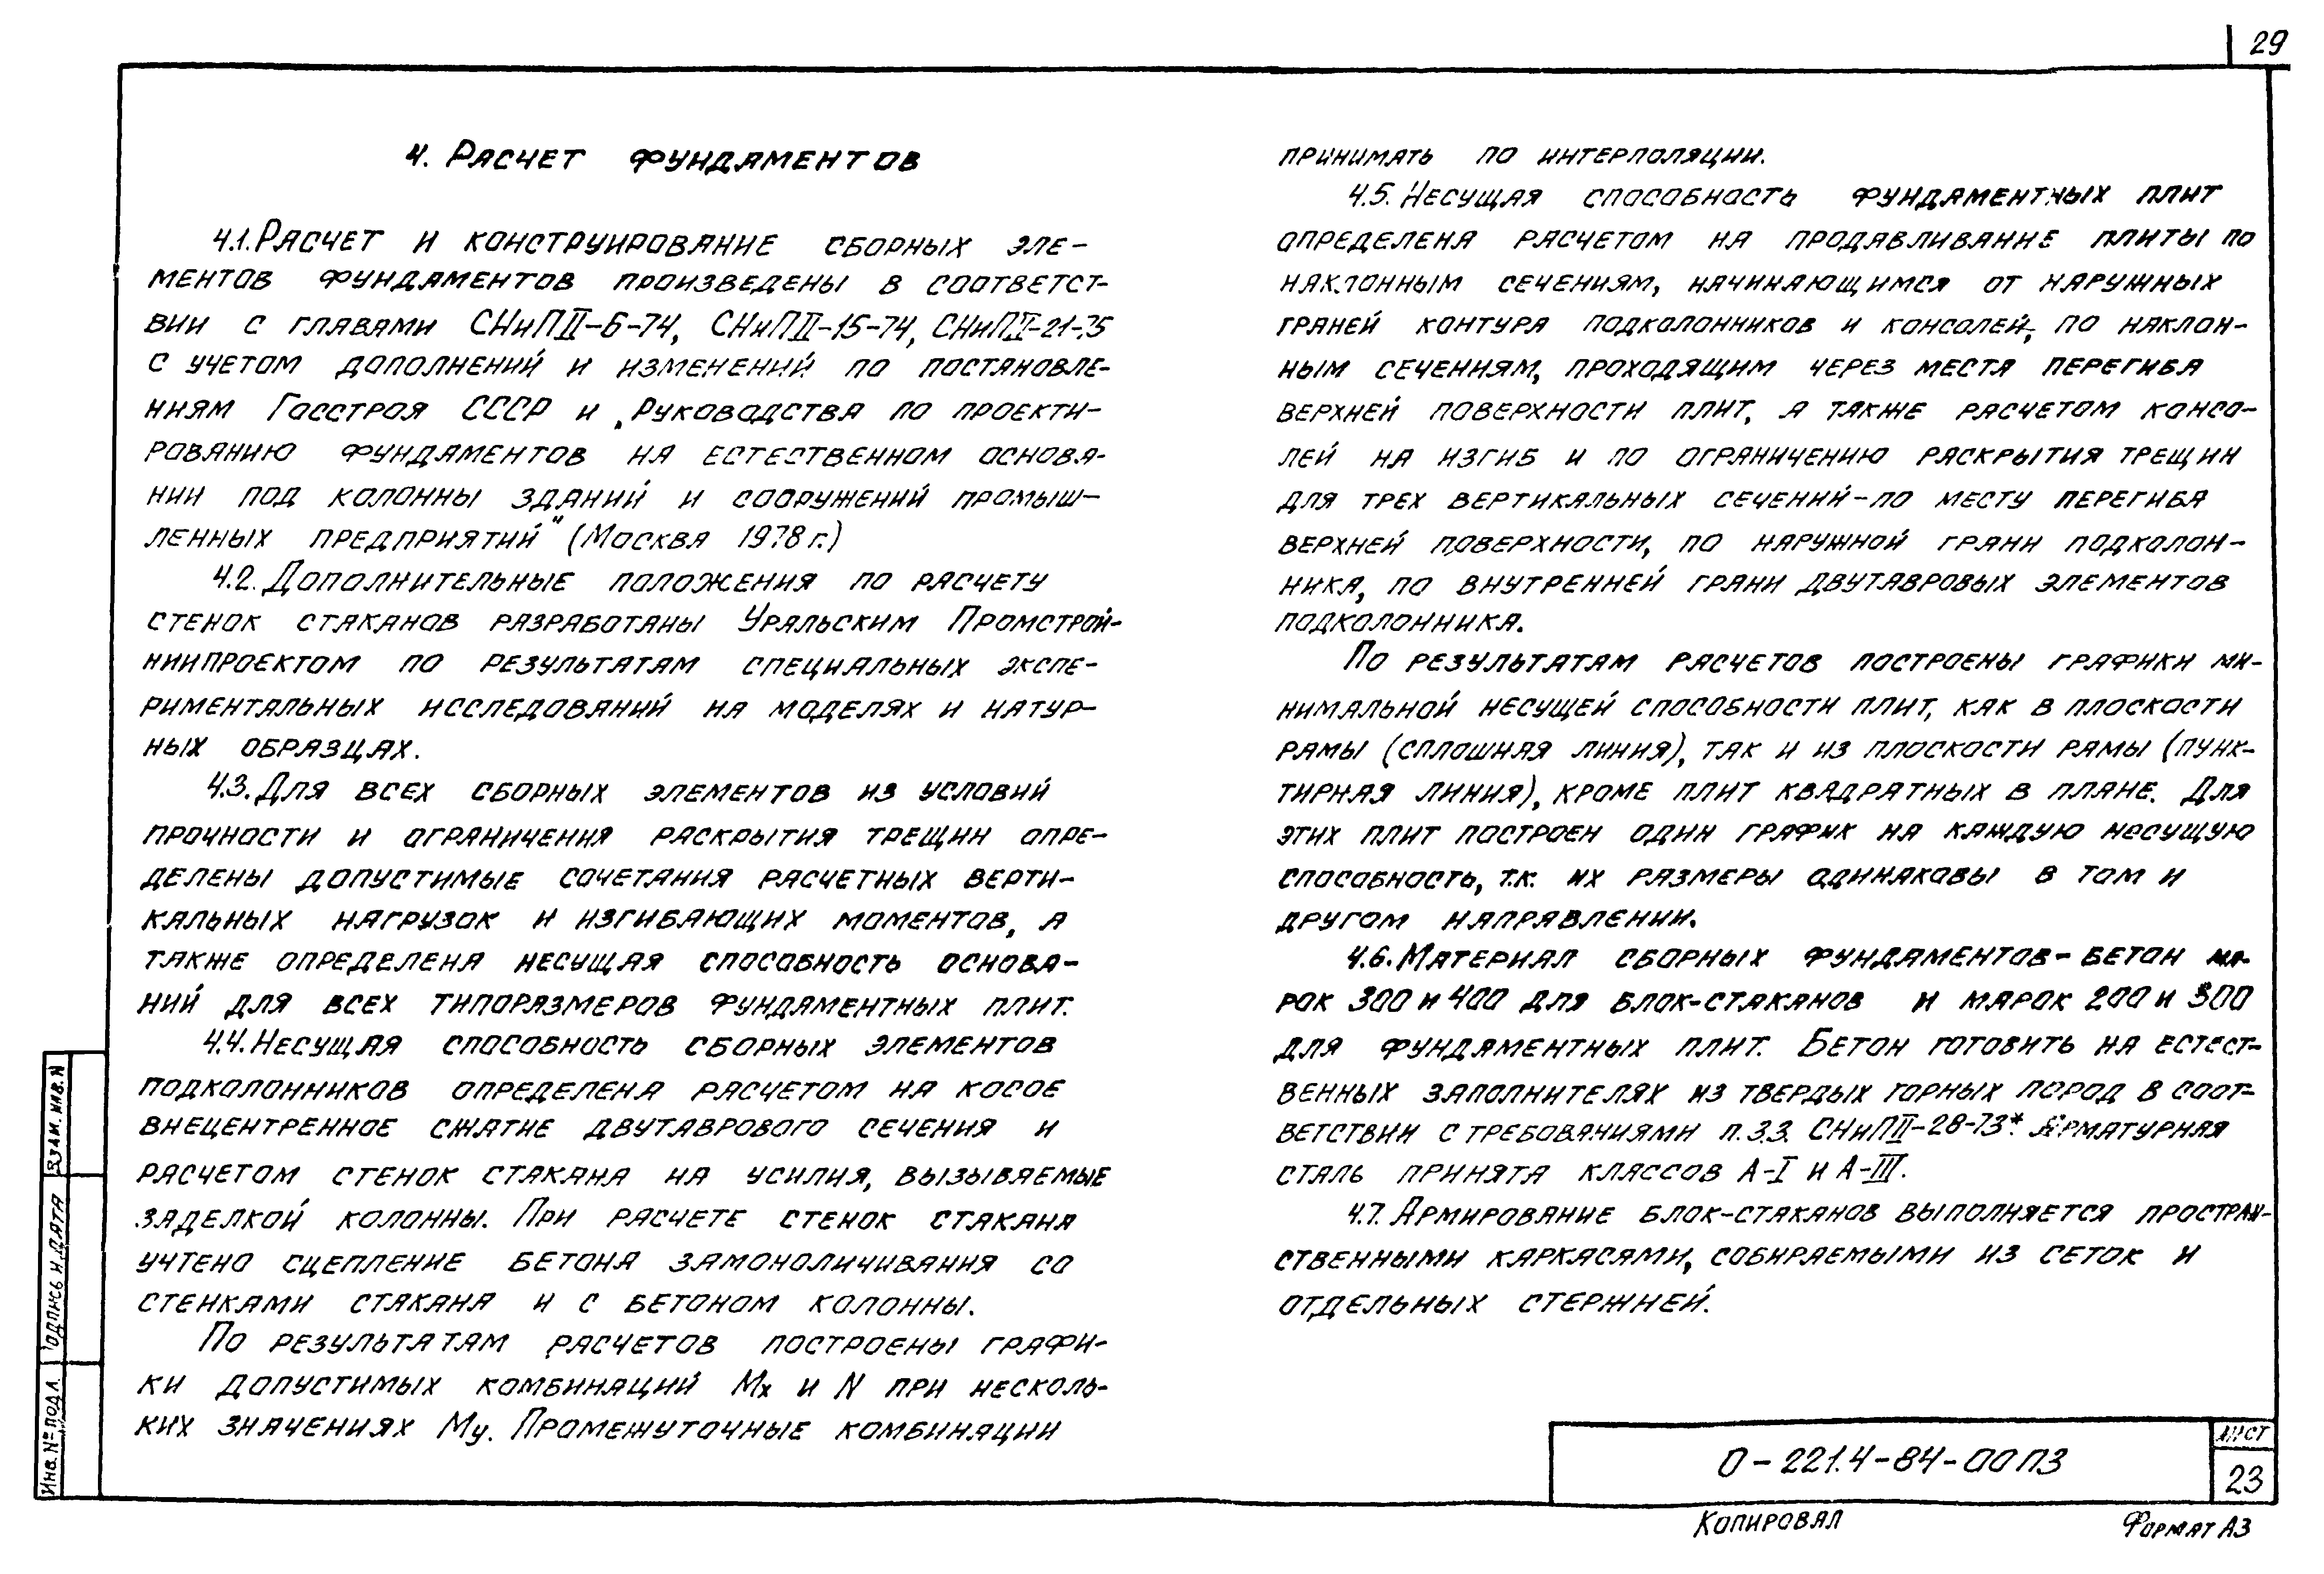 29
4. Расчет фундаментов
4.1. Расчет и конструирование сборных эле-
ментов фундаментов произведены в соответст-
вии с главами СНиП II-6-74, СНиП II-15-74, СНиП II-21-75
с учетом дополнений и изменений по постановле-
ниям Госстроя СССР и „Руководства по проекти-
рованию фундаментов на естественном основа-
нии под колонны зданий и сооружений промыш-
ленных предприятий" (Москва 1978 г.)
4.2. Дополнительные положения по расчету
стенок стаканов разработаны Уральским Промстрой-
ниипроектом по результатам специальных экспе-
риментальных исследований на моделях и натур-
ных образцах.
4.3. Для всех сборных элементов из условий
прочности и ограничения раскрытия трещин опре-
делены допустимые сочетания расчетных верти-
кальных нагрузок и изгибающих моментов, а
также определена несущая способность основа-
ний для всех типоразмеров фундаментных плит.
4.4. Несущая способность сборных элементов
подколонников определена расчетом на косое
внецентренное сжатие двутаврового сечения и
расчетом стенок стакана на усилия, вызываемые
заделкой колонны. При расчете стенок стакана
учтено сцепление бетона замоноличивания со
стенками стакана и с бетоном колонны.
По результатам расчетов построены графи-
ки допустимых комбинаций Мх и N при несколь-
ких значениях Му. Промежуточные комбинации
принимать по интерполяции.
4.5. Несущая способность фундаментных плит
определена расчетом на продавливание плиты по
наклонным сечениям, начинающимся от наружных
граней контура подколонников и консолей, по наклон-
ным сечениям, проходящим через места перегиба
верхней поверхности плит, а также расчетом консо-
лей на изгиб и по ограничению раскрытия трещин
для трех вертикальных сечений - по месту перегиба
верхней поверхности, по наружной грани подколон-
ника, по внутренней грани двутавровых элементов
подколонника.
По результатам расчетов построены графики ми-
нимальной несущей способности плит, как в плоскости
рамы (сплошная линия), так и из плоскости рамы (пунк-
тирная линия), кроме плит квадратных в плане. Для
этих плит построен один график на каждую несущую
способность, т.к. их размеры одинаковы в том и
другом направлении.
4.6. Материал сборных фундаментов - бетон ма-
рок 300 и 400 для блок-стаканов и марок 200 и 300
для фундаментных плит. Бетон готовить на естест-
венных заполнителях из твердых горных пород в соот-
ветствии с требованиями п.3.3. СНиП II-28-73*. Арматурная
сталь принята классов А-I и А-III.
4.7. Армирование блок-стаканов выполняется простран-
ственными каркасами, собираемыми из сеток и
отдельных стержней.
Взам. инв. N
Подпись и дата
Инв. № подл.
0-221.4-84-00 ПЗ
Лист
23
Копировал
Формат А3